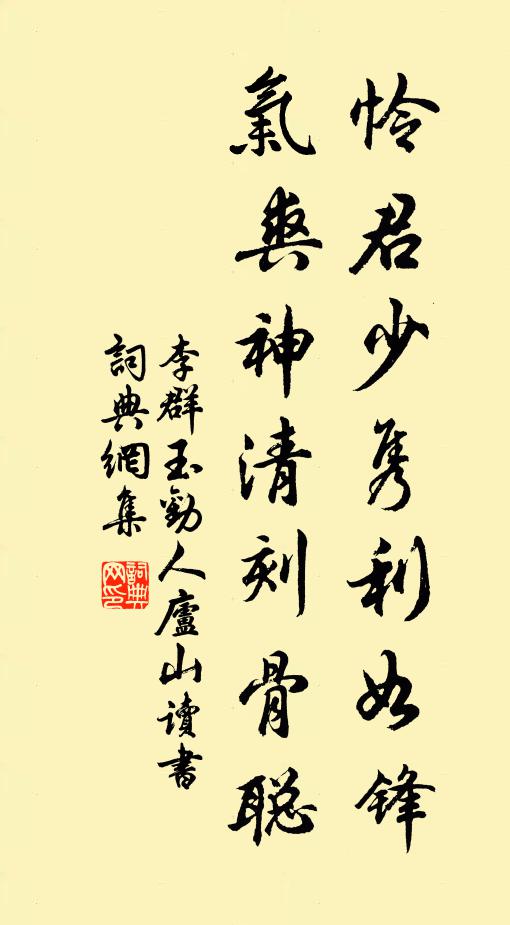 怜君少隽利如锋
氣爽神清刻骨聪
李群玉勸人廬山读書
詞典網集
詞典
网印